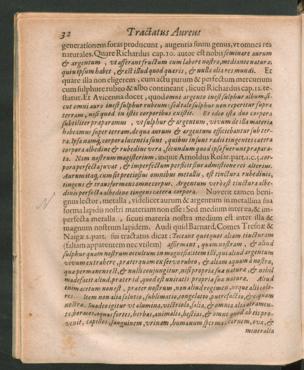 32 Tractatus Aureus
generationem foras producunt, augentia suum genus, ut omnes res
naturales. Quare Richardus cap. 10. autor est nobis seminare aurum
& argentum, ut afferant fructum cum labore nostro, mediante natura,
quia ipsum habet, & est illud quod quæris, & nulla alia res mundi. Et
quare illa non eligerem, cum actu purum & perfectum mercurium
cum sulphure rubeo & albo contineant, sicut Richardus cap. 12. te-
statur. Et Avicenna docet, quod omne argento inest sulphur album, si-
cut omni auro inest sulphur rubeum: sed tale sulphur non reperitur supra
terram, nisi quod in istis corporibus existit. Et ideo ista duo corpora
subtiliter præparamus, ut sulphur & argentum, vivum de illa materia
habeamus super terram, de qua aurum & argentum efficiebantur sub ter-
ra. Ipsa namq, corpora lucentia sunt, quibus insunt radii tingentes cætera
corpora albedine & rubedine vera, secundum quod ipsa fuerint præpara-
ta. Nam nostrum magisterium, inquit Arnoldus Rosar. part. 1. c. 5. cor-
pora perfecta juvat, & imperfecta
um itaq, cum sit pretiosius omnibus metallis, est tinctura rubedinis,
tingens & transformans omne corpus, Argentum verò est tinctura albe-
dinis perfecta albedine tingens cætera corpora. Nuverit tamen beni-
gnus lector, metalla, videlicet aurum & argentum in metallina sua
forma lapidis nostri materiam non esse: Sed medium inter ea, & im-
perfecta metalla, sicuti materia nostra medium est inter illa &
magnum nostrum lapidem. Audi quid Barnard. Comes Trevise &
Naige 2. part. sui tractatus dicat: Taceant quotquot aliam tincturam
(aliam apparentem nec veilem) affirmant, quam nostram, & aliud
sulphur quam nostrum
vivum extrahere, præterquam ex servo rubeo, & aliam aquam à nostra,
quæ permanens est, & nulli conjungitur, nisi propria sua natura, & nihil
madefaciens aliud, præter id, quod est unitatis propria sua natura. Aliud
enim acetum non est, præter nostrum, non aliud regimen, neque alii colo-
res.
nostra. Sinite
ta, herbas, animalia, bestias, & omne quod ab eis pro-
venit, capillos, sanguinem, urinam, humanum sperma, carnem, ova, &
mineralia